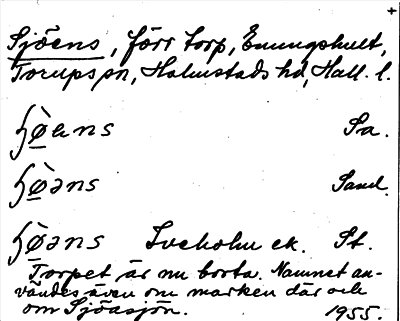 +
Sjöens, förr torp, Enungshult,
Torups sn, Halmstads hd, Hall. l.
ɧø̀ens Sa.
ɧø̀əns Sand.
ɧø̀əns Lveholm ek. St.
Torpet är nu borta. Namnet an-
vändes även om marken där och
om Sjöasjön. 1955.